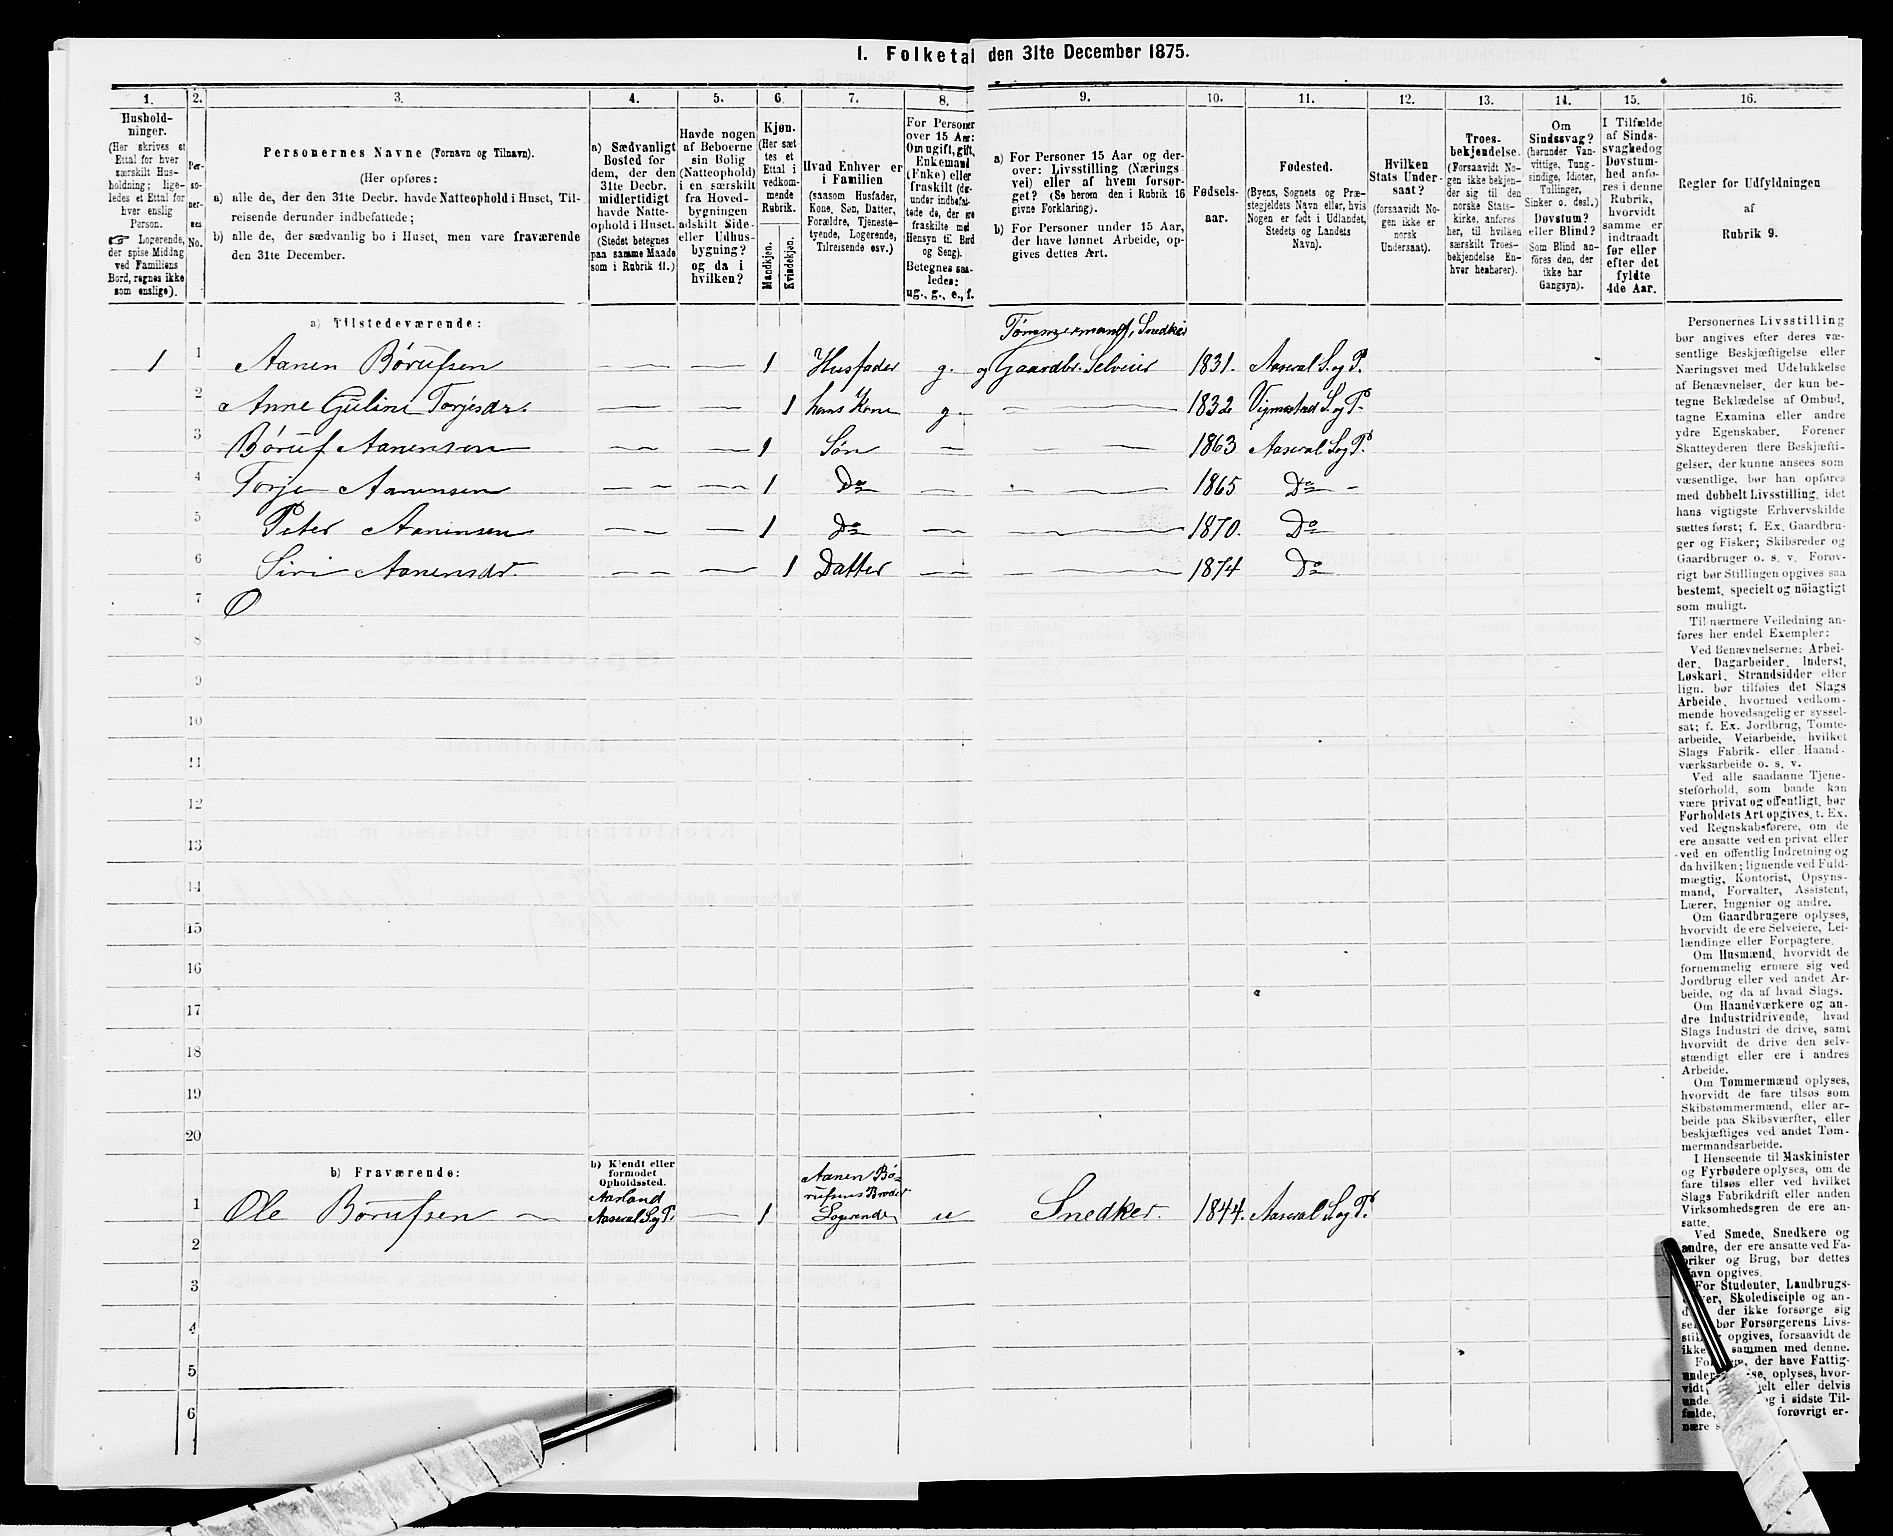 1. Folketal den 31te December 1875.
1. 2. 3. 4. 5. 6. 7. 8. 9. 10. 11. 12. 13. 14. 15. 16.
Hushold-
ninger.
(Her skrives et
Ettal for hver
særskilt Hus-
holdning; lige-
ledes et Ettal for
hver enslig
Person.
☞ Logerende,
der spise Middag
ved Familiens
Bord, regnes ikke
som enslige).
Per-
so-
ner-
nes
No.
Personernes Navne (Fornavn og Tilnavn).
(Her opføres:
a) alle de, der den 31te Decbr. havde Natteophold i Huset, Til-
reisende derunder indbefattede;
b) alle de, der sædvanlig bo i Huset, men vare fraværende
den 31te December.
a) Sædvanligt
Bosted for
dem, der den
31te Decbr.
midlertidigt
havde Natte-
ophold i Huset.
(Stedet betegnes
paa samme Maade
som i Rubrik 11.)
Havde nogen
af Beboerne
sin Bolig
(Natteophold)
i en særskilt
fra Hoved-
bygningen
adskilt Side-
eller Udhus-
bygning?
og da i
hvilken?
Kjøn.
(Her sæt
tes et
Ettal i
vedkom-
mende
Rubrik.
Mandkjøn.
Kvindekjøn.
Hvad Enhver er
i Familien
(saasom Husfader,
Kone, Søn, Datter,
Forældre, Tjeneste-
tyende, Logerende,
Tilreisende osv.)
For Personer
over 15 Aar:
Om ugift, gift,
Enkemand
(Enke) eller
fraskilt (der-
under indbefat-
tede de, der ere
fraskilte med
Hensyn til Bord
og Seng).
Betegnes saa-
ledes:
ug., g., e., f.
a) For Personer 15 Aar og der-
over: Livsstilling (Nærings
vei) eller af hvem forsør-
get? (Se herom den i Rubrik 16
givne Forklaring).
b) For Personer under 15 Aar,
der have lønnet Arbeide, op-
gives dettes Art.
Fødsels-
aar.
Fødested.
(Byens, Sognets og Præ-
stegjeldets Navn eller, hvis
Nogen er født i Udlandet,
Stedets og Landets
Navn).
Hvilken
Stats Under-
saat?
(forsaavidt No-
gen ikke er
norsk
Undersaat).
Troes-
bekjendelse.
(Forsaavidt No-
gen ikke bekjen-
der sig til den
norske Stats-
kirke, anføres
her, til hvilken
særskilt Troes-
bekjendelse En-
hver henhører).
Om
Sindssvag?
(herunder Van-
vittige, Tung-
sindige, Idioter,
Tullinger,
Sinker o. desl.)
Døvstum?
eller Blind?
(Som Blind an-
føres den, der
ikke har
Gangsyn).
I Tilfælde
af Sinds-
svaghed og
Døvstum-
hed anfø-
res i denne
Rubrik,
hvorvidt
samme er
indtraadt
før eller
efter det
fyldte
4de Aar.
Regler for Udfyldningen
af
Rubrik 9.
a) Tilstedeværende:
Tømmermand, Snedker
1 1 Aanen Børufsen — — 1 Husfader g. og Gaardbr. Selveier 1831. Aaseral S. og P.
2 Anne Guline Torjesdr. — — 1 hans Kone g. — 1832 Vigmostad S. og P.
3 Børuf Aanensen — — 1 Søn — — 1863 Aaseral S og P.
4 Torje Aanensen — — 1 Do — — 1865 Do —
5 Peter Aanensen — — 1 Do — — 1870. Do
6 Siri Aanensdr. — — 1 Datter — — 1874 Do
7
8
9
10
11
12
13
14
15
16
17
18
19
20
b) Fraværende:
b) Kjendt eller
formodet
Opholdssted.
1 Ole Børufsen — Aarland Aaseral S. og P. — 1 Aanen Bø-
rufsens Broder
Logerende u Snedker. 1844. Aaseral S. og P.
2
3
4
5
6
Personernes Livsstilling
bør angives efter deres væ-
sentlige Beskjæftigelse eller
Næringsvei med Udelukkelse
af Benævnelser, der kun be-
tegne Beklædelse af Ombud,
tagne Examina eller andre
ydre Egenskaber. Forener
Skatteyderen flere Beskjæfti-
gelser, der kunne ansees som
væsentlige, bør han opføres
med dobbelt Livsstilling, idet
hans vigtigste Erhvervskilde
sættes først; f. Ex. Gaardbru-
ger og Fisker; Skibsreder og
Gaardbruger o. s. v. Forøv-
rigt bør Stillingen opgives saa
bestemt, specielt og nøiagtigt
som muligt.
Til nærmere Veiledning an-
føres her endel Exempler:
Ved Benævnelserne: Arbei-
der, Dagarbeider, Inderst,
Løskarl, Strandsidder eller
lign. bør tilføies det Slags
Arbeide, hvormed vedkom-
mende hovedsagelig er syssel-
sat; f. Ex. Jordbrug, Tomte-
arbeide, Veiarbeide, hvilket
Slags Fabrik- eller Haand-
værksarbeide o. s. v.
Ved alle saadanne Tjene-
steforhold, som baade kan
være privat og offentligt, bør
Forholdets Art opgives, f. Ex.
ved Regnskabsførere, om de
ere ansatte ved en privat eller
ved en offentlig Indretning og
da hvilken; lignende ved Fuld-
mægtig, Kontorist, Opsyns-
mand, Forvalter, Assistent,
Lærer, Ingeniør og andre.
Om Gaardbrugere oplyses,
hvorvidt de ere Selveiere, Lei-
lændinge eller Forpagtere.
Om Husmænd, hvorvidt de
fornemmelig ernære sig ved
Jordbrug eller ved andet Ar-
beide, og da af hvad Slags.
Om Haandværkere og an-
dre Industridrivende, hvad
Slags Industri de drive, samt
hvorvidt de drive den selv-
stændigt eller ere i andres
Arbeide.
Om Tømmermænd oplyses,
hvorvidt de fare tilsøs som
Skibstømmermænd, eller ar-
beide paa Skibsværfter, eller
beskjæftiges ved andet Tøm-
mermandsarbeide.
I Henseende til Maskinister
og Fyrbødere oplyses, om de
fare tilsøs eller ved hvilket
Slags Fabrikdrift eller anden
Virksomhedsgren de ere an-
satte.
Ved Smede, Snedkere og
andre, der ere ansatte ved Fa-
briker og Brug, bør dettes
Navn opgives.
For Studenter, Landbrugs-
elever, Skoledisciple og an-
der ikke forsørge sig
bør Forsørgerens Livs-
opgives, forsaavidt de
ikke sammen med denne.
der have Fattig-
oplyses, hvor-
eller delvis
og i sidste Til-
fælde, forøvrigt er-
nære